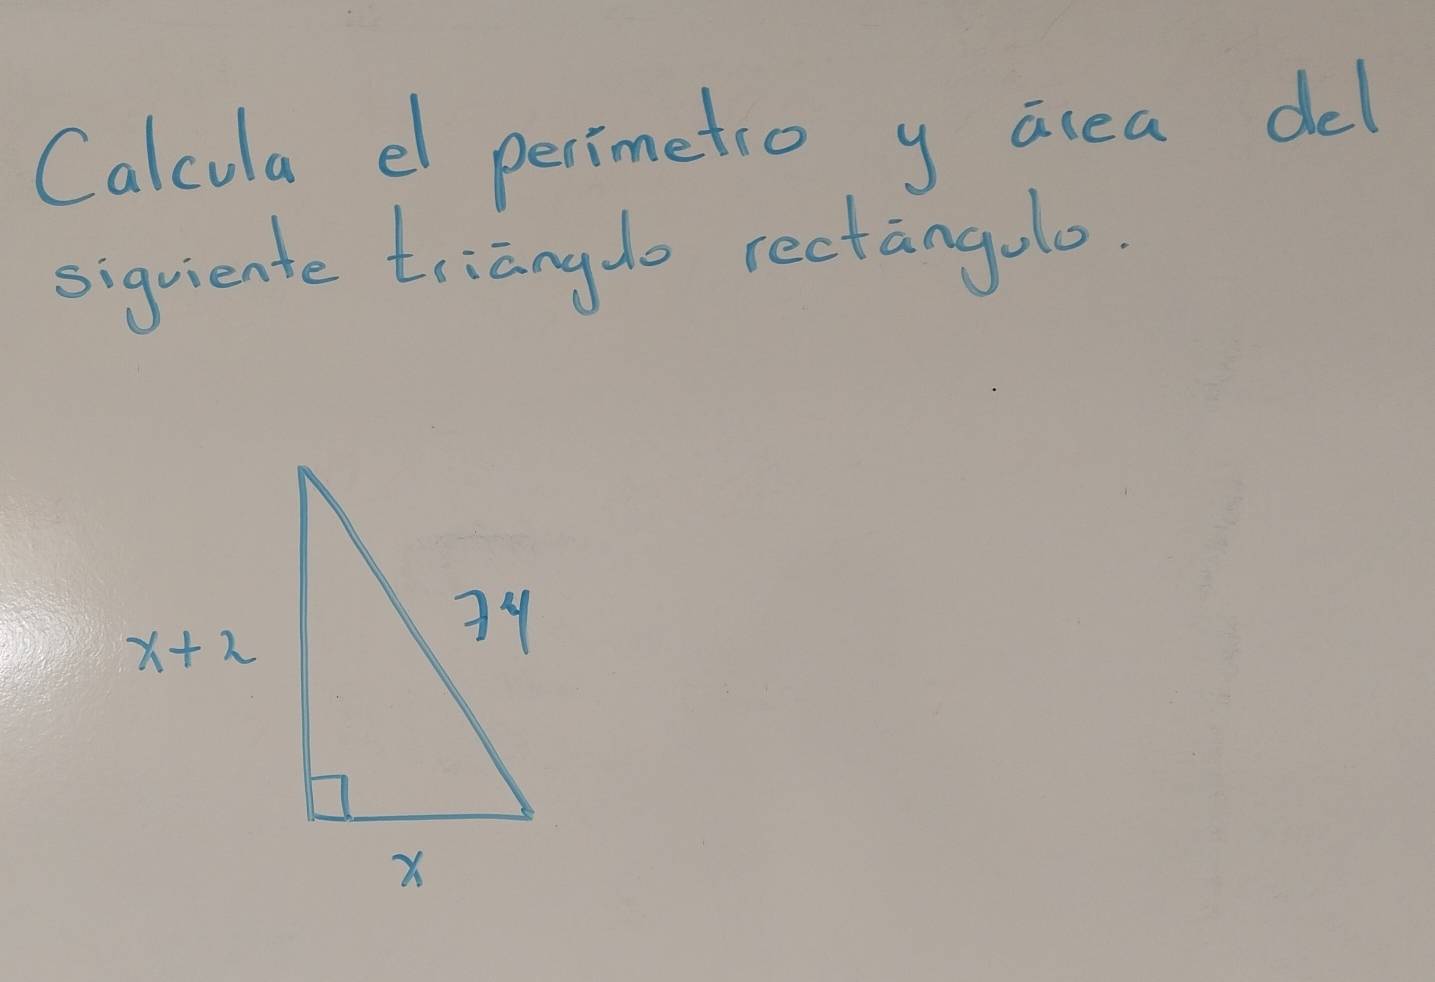 Calcula el perímetro y área del
siguiente triángulo rectángulo.
x+2
74
x